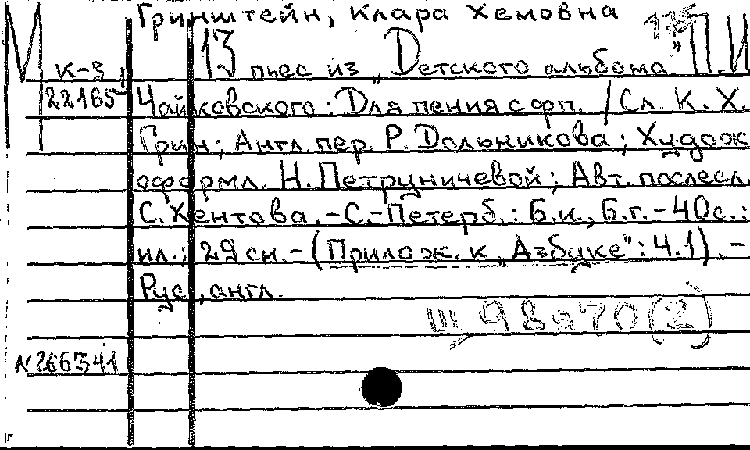 Гринштейн, Клара Хемовна
М 13 пьес из „Детского альбома" П.И.
К-3
22165 Чайковского: Для пения с фп. / Сл. К. Х.
Грин; Англ. пер. Р. Дольникова; Худож.
оформл. Н. Петруничевой; Авт. послесл.
С. Хентова. - С.-Петерб.: Б.и., Б.г. - 40 с.:
ил.; 29 см. - (Прилож. к „Азбуке": Ч.1). -
Рус., англ.
Щ 98 970 (2)
N 266341